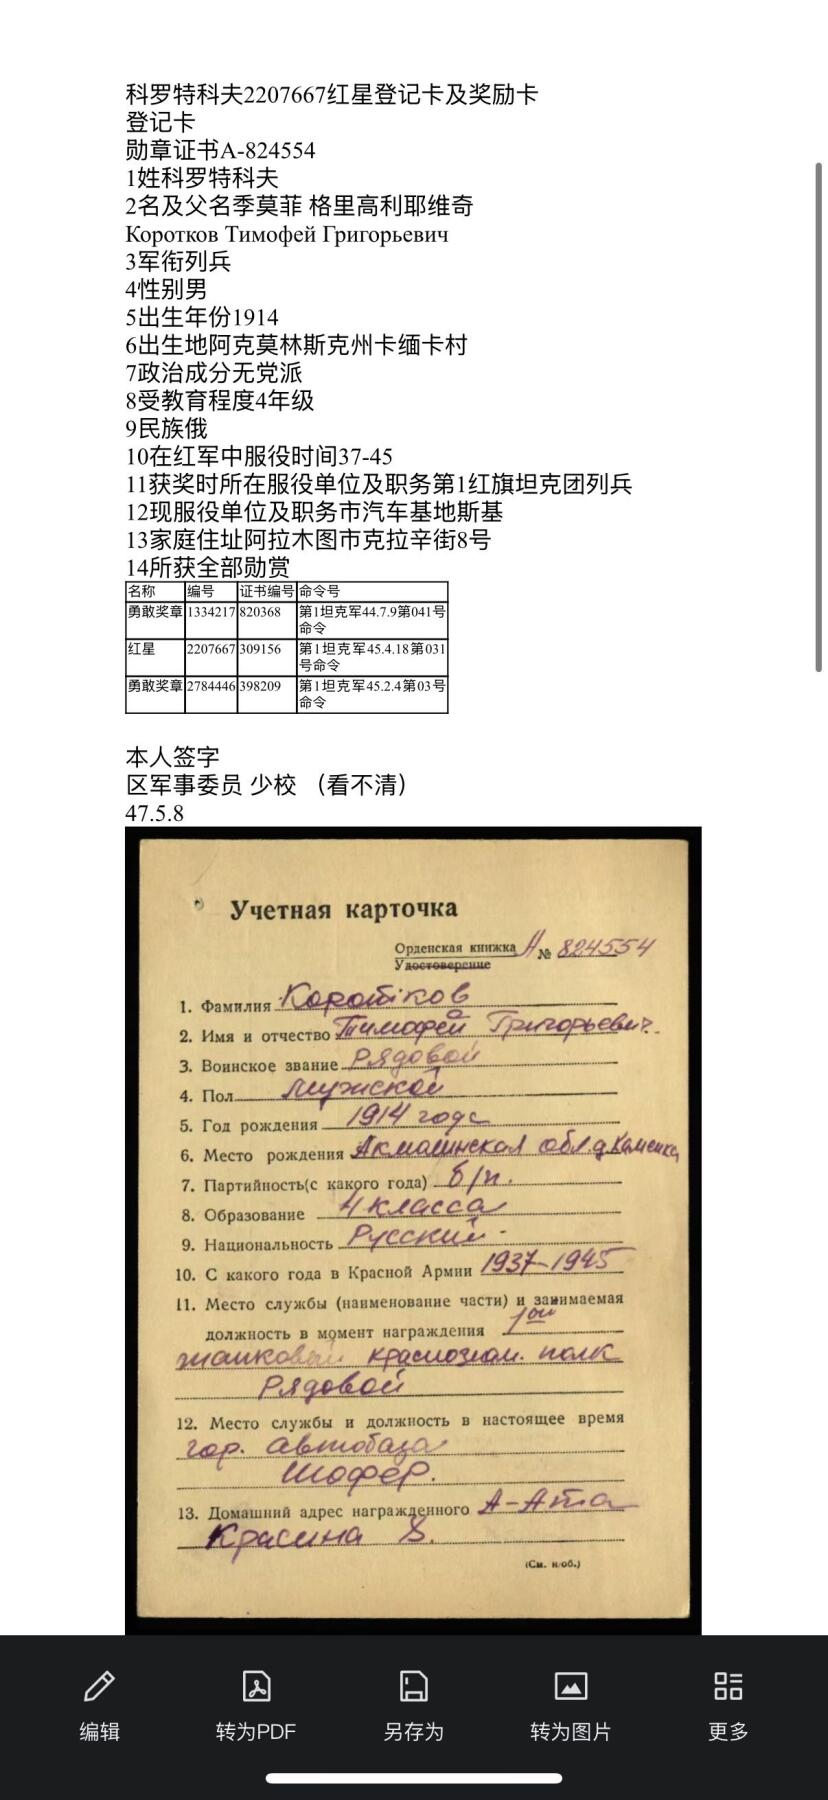 科罗特科夫2207667红星登记卡及奖励卡
登记卡
勋章证书A-824554
1姓科罗特科夫
2名及父名季莫菲 格里高利耶维奇
Коротков Тимофей Григорьевич
3军衔列兵
4性别男
5出生年份1914
6出生地阿克莫林斯克州卡缅卡村
7政治成分无党派
8受教育程度4年级
9民族俄
10在红军中服役时间37-45
11获奖时所在服役单位及职务第1红旗坦克团列兵
12现服役单位及职务市汽车基地斯基
13家庭住址阿拉木图市克拉辛街8号
14所获全部勋赏
名称 编号 证书编号 命令号
勇敢奖章 1334217 820368 第1坦克军44.7.9第041号
命令
红星 2207667 309156 第1坦克军45.4.18第031
号命令
勇敢奖章 2784446 398209 第1坦克军45.2.4第03号
命令
本人签字
区军事委员 少校 （看不清）
47.5.8
Учетная карточка
Орденская книжка А № 824554
Удостоверение
1. Фамилия Коротков
2. Имя и отчество Тимофей Григорьевич.
3. Воинское звание Рядовой
4. Пол мужской
5. Год рождения 1914 года
6. Место рождения Акмолинская обл. д. Каменка
7. Партийность(с какого года) б/п.
8. Образование 4 класса
9. Национальность Русский
10. С какого года в Красной Армии 1937-1945
11. Место службы (наименование части) и занимаемая
должность в момент награждения 1ой
танковый краснозн. полк
Рядовой
12. Место службы и должность в настоящее время
гор. автобаза
Шофер.
13. Домашний адрес награжденного А-Ата
Красина 8.
(См. н/об.)
编辑 转为PDF 另存为 转为图片 更多